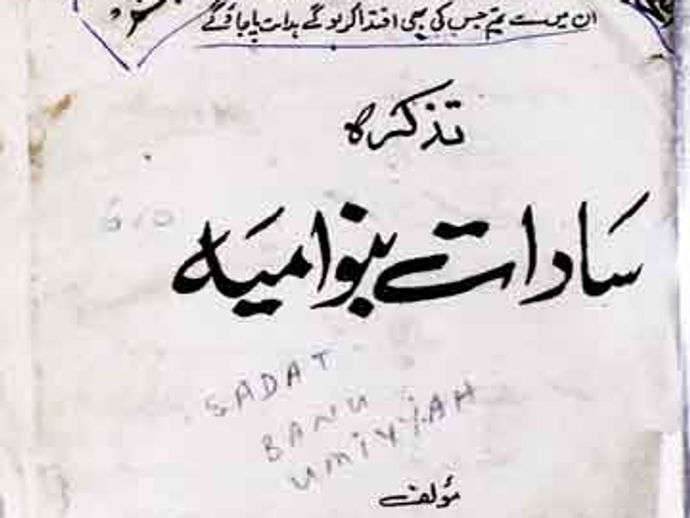 ان میں سے تم جس کی بھی اقتدا کرو گے ہدایت پا جاؤ گے
تذکرہ
سادات بنو امیہ
610
SADAT
BANU
UMIYYAH
مؤلف